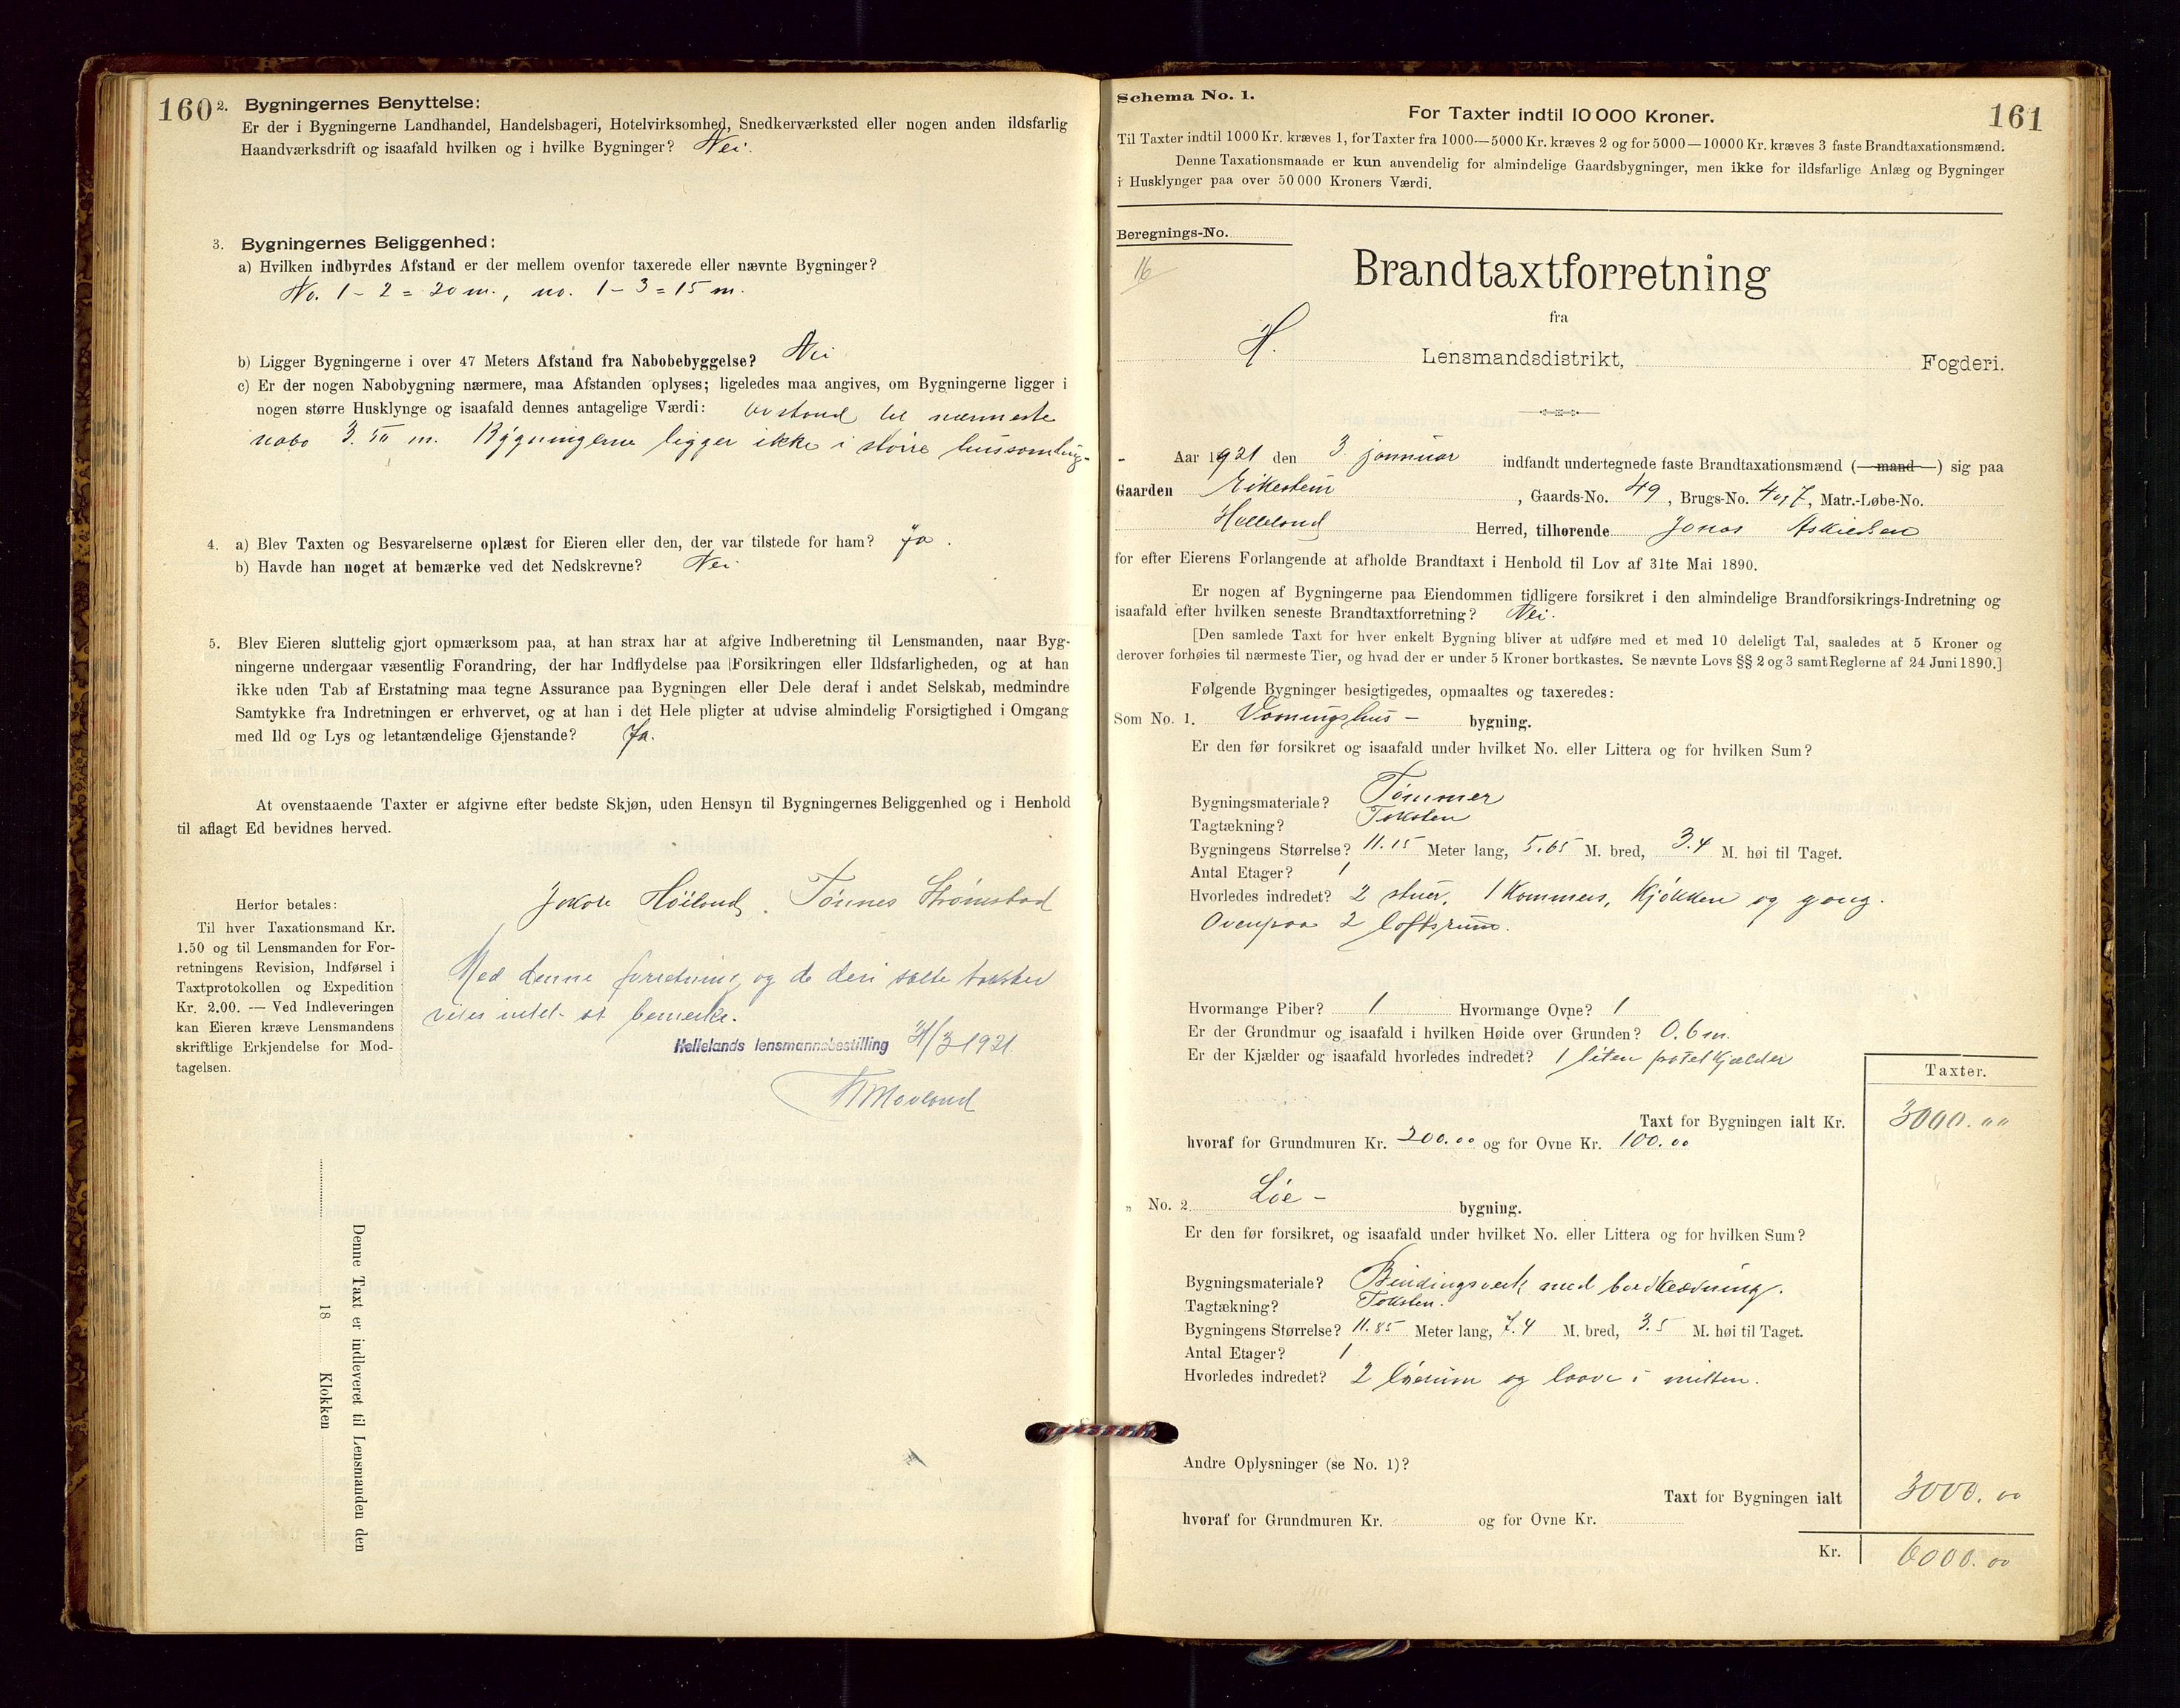 160
2. Bygningernes Benyttelse:
Er der i Bygningerne Landhandel, Handelsbageri, Hotelvirksomhed, Snedkerværksted eller nogen anden ildsfarlig
Haandværksdrift og isaafald hvilken og i hvilke Bygninger? Nei.
3. Bygningernes Beliggenhed:
a) Hvilken indbyrdes Afstand er der mellem ovenfor taxerede eller nævnte Bygninger?
No. 1 - 2 = 20 m., no. 1 - 3 = 15 m.
b) Ligger Bygningerne i over 47 Meters Afstand fra Nabobebyggelse? Nei
c) Er der nogen Nabobygning nærmere, maa Afstanden oplyses; ligeledes maa angives, om Bygningerne ligger i
nogen større Husklynge og isaafald dennes antagelige Værdi: Avstand til nærmeste
nabo m. Bygningerne ligger ikke i større hussamling-
4. a) Blev Taxten og Besvarelserne oplæst for Eieren eller den, der var tilstede for ham? Ja.
b) Havde han noget at bemærke ved det Nedskrevne? Nei
5. Blev Eieren sluttelig gjort opmærksom paa, at han strax har at afgive Indberetning til Lensmanden, naar Byg-
ningerne undergaar væsentlig Forandring, der har Indflydelse paa Forsikringen eller Ildsfarligheden, og at han
ikke uden Tab af Erstatning maa tegne Assurance paa Bygningen eller Dele deraf i andet Selskab, medmindre
Samtykke fra Indretningen er erhvervet, og at han i det Hele pligter at udvise almindelig Forsigtighed i Omgang
med Ild og Lys og letantændelige Gjenstande? Ja.
At ovenstaaende Taxter er afgivne efter bedste Skjøn, uden Hensyn til Bygningernes Beliggenhed og i Henhold
til aflagt Ed bevidnes herved.
Jakob Høiland. Tønnes Strømstad
Herfor betales:
Til hver Taxationsmand Kr.
1.50 og til Lensmanden for For-
retningens Revision, Indførsel i
Taxtprotokollen og Expedition
Kr. 2.00. — Ved Indleveringen
kan Eieren kræve Lensmandens
skriftlige Erkjendelse for Mod-
tagelsen.
Med denne forretning og de deri satte takster
vites intet at bemerke.
Hellelands lensmannsbestilling 31/3 1921
Denne Taxt er indleveret til Lensmanden den
18 Klokken
161
Schema No. 1.
For Taxter indtil 10 000 Kroner.
Til Taxter indtil 1000 Kr. kræves 1, for Taxter fra 1000—5000 Kr. kræves 2 og for 5000—10000 Kr. kræves 3 faste Brandtaxationsmænd.
Denne Taxationsmaade er kun anvendelig for almindelige Gaardsbygninger, men ikke for ildsfarlige Anlæg og Bygninger
i Husklynger paa over 50 000 Kroners Værdi.
Beregnings-No.
16
Brandtaxtforretning
fra
H. Lensmandsdistrikt, Fogderi.
Aar 1921 den 3. januar indfandt undertegnede faste Brandtaxationsmænd (mand) sig paa
Gaarden Eikestein, Gaards-No. 49, Brugs-No. 4 og 7, Matr.-Løbe-No.
Helleland Herred, tilhørende Jonas Askildsen
for efter Eierens Forlangende at afholde Brandtaxt i Henhold til Lov af 31te Mai 1890.
Er nogen af Bygningerne paa Eiendommen tidligere forsikret i den almindelige Brandforsikrings-Indretning og
isaafald efter hvilken seneste Brandtaxtforretning? Nei.
[Den samlede Taxt for hver enkelt Bygning bliver at udføre med et med 10 deleligt Tal, saaledes at 5 Kroner og
derover forhøies til nærmeste Tier, og hvad der er under 5 Kroner bortkastes. Se nævnte Lovs §§ 2 og 3 samt Reglerne af 24 Juni 1890.]
Følgende Bygninger besigtigedes, opmaaltes og taxeredes:
Som No. 1. Vaaningshus - bygning.
Er den før forsikret og isaafald under hvilket No. eller Littera og for hvilken Sum?
Bygningsmateriale? Tømmer
Tagtækning? Taksten
Bygningens Størrelse? 11.15 Meter lang, 5.65 M. bred, 3.4 M. høi til Taget.
Antal Etager? 1
Hvorledes indredet? 2 stuer, 1 kammers, kjøkken og gang.
Ovenpaa 2 loftsrum.
Hvormange Piber? 1 Hvormange Ovne? 1
Er der Grundmur og isaafald i hvilken Høide over Grunden? 0.6 m.
Er der Kjælder og isaafald hvorledes indredet? 1 liten potetkjælder
Taxter.
Taxt for Bygningen ialt Kr. 3000.00
hvoraf for Grundmuren Kr. 200.00 og for Ovne Kr. 100.00
" No. 2. Løe - bygning.
Er den før forsikret, og isaafald under hvilket No. eller Littera og for hvilken Sum?
Bygningsmateriale? Bindingsverk med bordklædning.
Tagtækning? Taksten.
Bygningens Størrelse? 11.85 Meter lang, 7.4 M. bred, 3.5 M. høi til Taget.
Antal Etager? 1
Hvorledes indredet? 2 løerum og laave i midten.
Andre Oplysninger (se No. 1)?
Taxt for Bygningen ialt 3000.00
hvoraf for Grundmuren Kr. og for Ovne Kr.
Kr. 6000.00